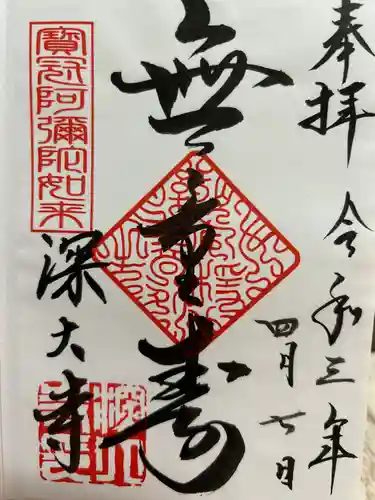 奉拝
令和三年
四月七日
無量寿
寶冠阿彌陀如来
深大寺